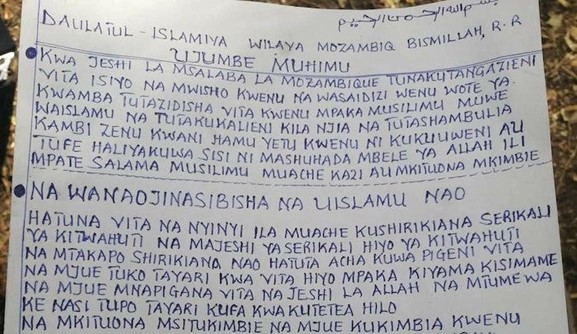 بسم الله الرحمن الرحيم
DAULATUL - ISLAMIYA WILAYA MOZAMBIQ BISMILLAH, R.R
UJUMBE MUHIMU
KWA JESHI LA MSALABA LA MOZAMBIQUE TUNAKUTANGAZIENI
VITA ISIYO NA MWISHO KWENU NA WASAIDIZI WENU WOTE YA
KWAMBA TUTAZIDISHA VITA KWENU MPAKA MUSILIMU MUWE
WAISLAMU NA TUTAKUKALIENI KILA NJIA NA TUTASHAMBULIA
KAMBI ZENU KWANI HAMU YETU KWENU NI KUKUUWENI AU
TUFE HALIYAKUWA SISI NI MASHUHADA MBELE YA ALLAH ILI
MPATE SALAMA MUSILIMU MUACHE KAZI AU MKITUONA MKIMBIE
NA WANAOJINASIBISHA NA UISLAMU NAO
HATUNA VITA NA NYINYI ILA MUACHE KUSHIRIKIANA SERIKALI
YA KITWAHUTI NA MAJESHI YA SERIKALI HIYO YA KITWAHUTI
NA MTAKAPO SHIRIKIANO NAO HATUTA ACHA KUWA PIGENI VITA
NA MJUE TUKO TAYARI KWA VITA HIYO MPAKA KIYAMA KISIMAME
NA MJUE MNAPIGANA VITA NA JESHI LA ALLAH NA MTUME WA
KE NASI TUPO TAYARI KUFA KWA KUTETEA HILO
NA MKITUONA MSITUKIMBIE NA MJUE KUKIMBIA KWENU